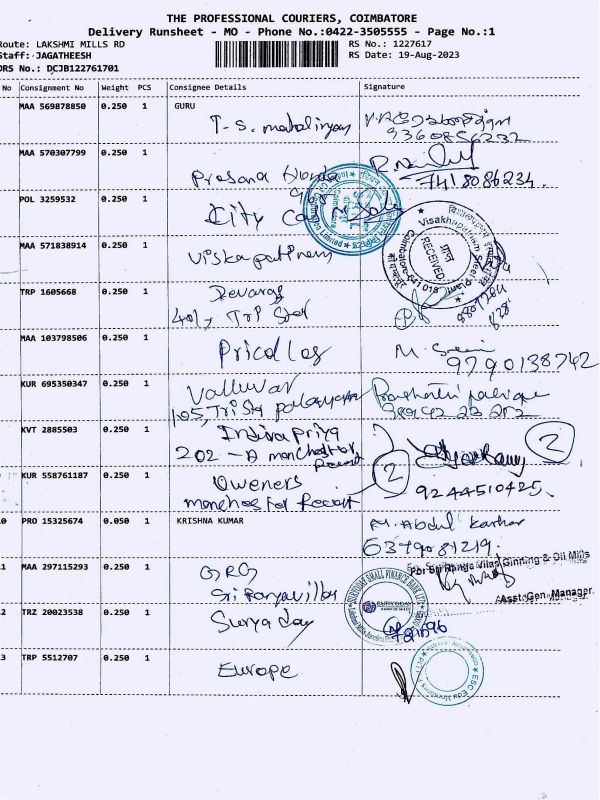 THE PROFESSIONAL COURIERS, COIMBATORE
Delivery Runsheet - MO - Phone No.:0422-3505555 - Page No.:1
Route: LAKSHMI MILLS RD RS No.: 1227617
Staff: JAGATHEESH RS Date: 19-Aug-2023
DRS No.: DCJB122761701
No Consignment No Weight PCS Consignee Details Signature
MAA 569878850 0.250 1 GURU
T-S. mahalingam
9360856232
MAA 570307799 0.250 1 Prasana Honda
7418086234.
POL 3259532 0.250 1 City
MAA 571838914 0.250 1 Viskapatinam
Visakhapatnam Steel Plant
RECEIVED
Coimbatore-641 018
TRP 1605668 0.250 1 Devaraj
401, TrP Std
MAA 103798506 0.250 1 Pricollos M.
9790138742
KUR 695350347 0.250 1 Valluvar
105,
KVT 2885503 0.250 1 Indira Priya
202 - A manchester Recent
2
KUR 558761187 0.250 1 Oweners
manchester Recent
2
9244510425.
0 PRO 15325674 0.050 1 KRISHNA KUMAR M. Abdul
6379081219.
1 MAA 297115293 0.250 1 GRG
For Sri Ranga Vilas Ginning & Oil Mills
Asst.Gen.Manager.
2 TRZ 20023538 0.250 1 Surya day
SURYODAY SMALL FINANCE BANK LTD
SURYODAY
3 TRP 5512707 0.250 1 Europe